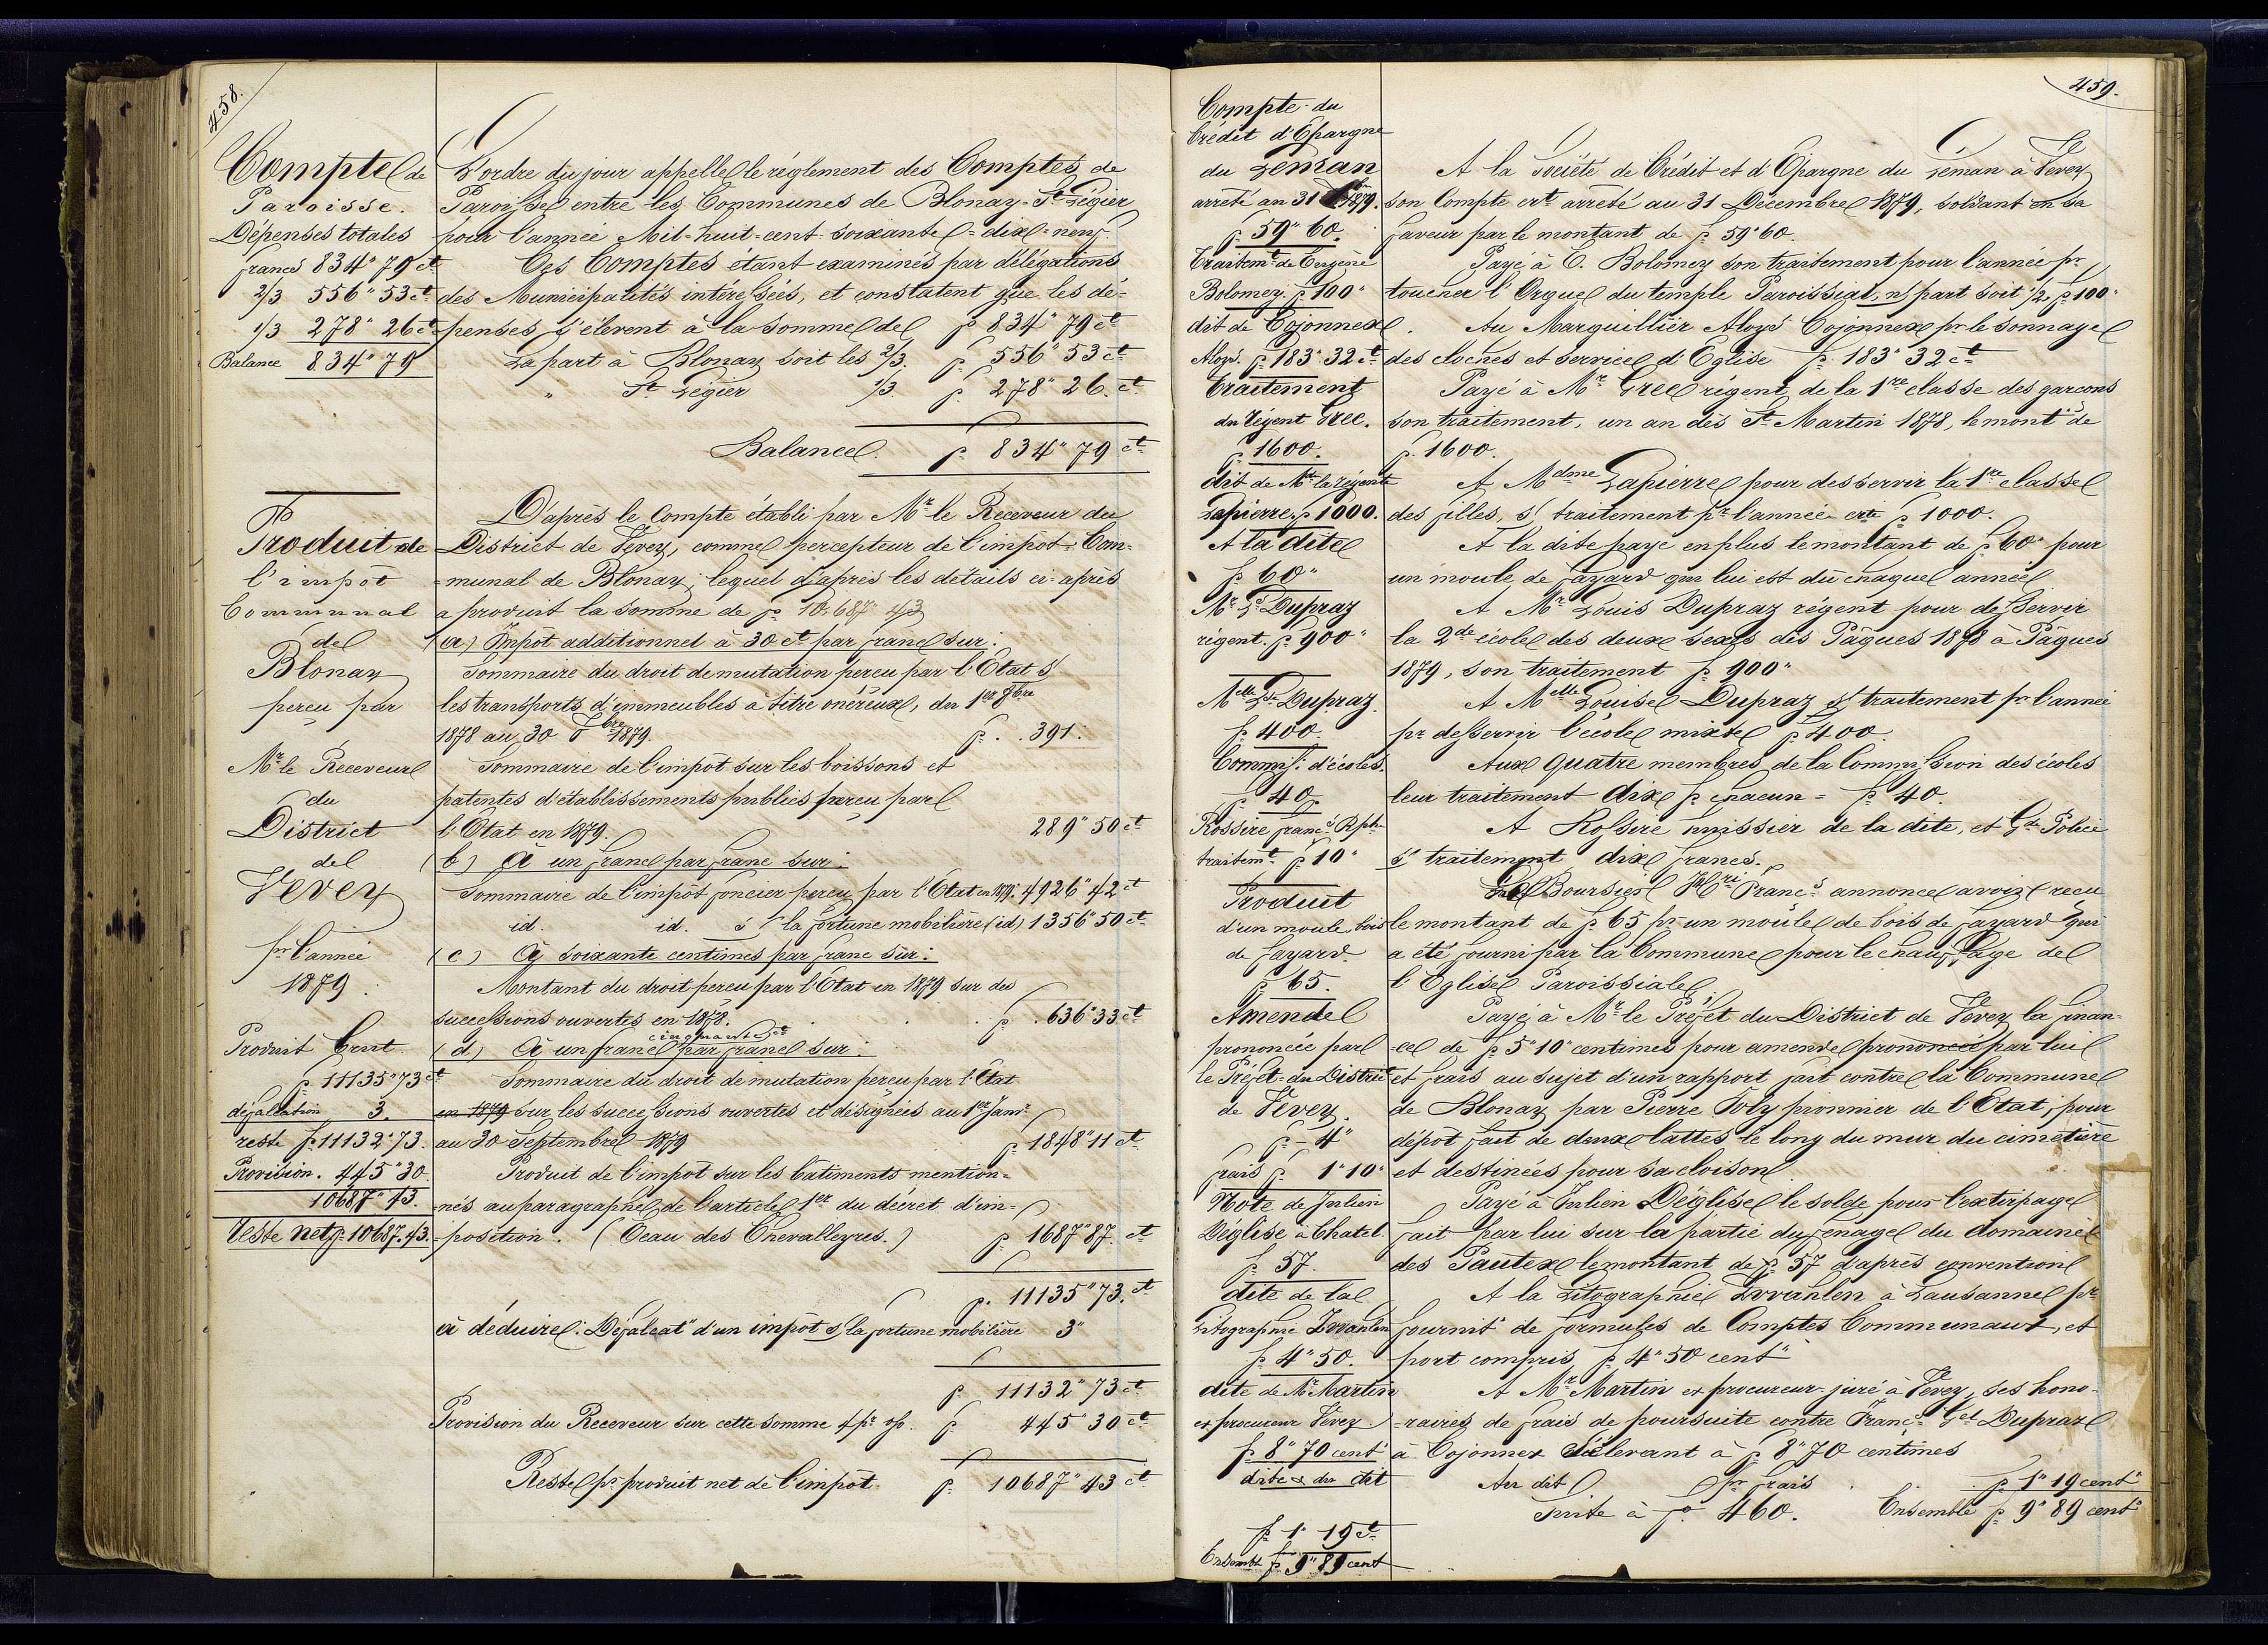 458.
Compte de
Paroisse.
Dépenses totales
francs 834" 79 ct
2/3 556" 53 ct
1/3 278" 26 ct
Balance 834" 79
L'ordre du jour appelle le réglement des Comptes de
Paroisse entre les Communes de Blonay-St Légier
pour l'année Mil-huit-cent-soixante-dix-neuf.
Ces Comptes étant examinés par délégations
des Municipalités intéressées, et constatent que les dé-
penses s'élèvent à la somme de f. 834" 79 ct
La part à Blonay soit les 2/3. f. 556" 53 ct
" St Légier 1/3. f. 278" 26. ct
Balance. f. 834" 79 ct
Produit de
l'impôt
Communal
de
Blonay
perçu par
Mr le Receveur
du
District
de
Vevey
pr l'année
1879.
Produit brut.
f. 11135" 73 ct
défalcation 3.
reste f. 11132" 73.
Provision. 445" 30.
10687" 43.
Reste net f. 10687. 43.
D'après le Compte établi par Mr le Receveur du
District de Vevey, comme percepteur de l'impôt Com-
=munal de Blonay, lequel d'après les détails ci-après
a produit la somme de f. 10,687" 43
(a) Impôt additionnel à 30 ct par franc sur:
Sommaire du droit de mutation perçu par l'Etat s/
les transports d'immeubles à titre onéreux, du 1er 8bre
1878 au 30 7bre 1879. f. 391.
Sommaire de l'impôt sur les boissons et
patentes d'établissements publics perçu par
l'Etat en 1879. 289" 50 ct
(b) à un franc par franc sur:
Sommaire de l'impôt foncier perçu par l'Etat en 1879. 4926" 42 ct
id. id. s/ la fortune mobilière (id) 1356" 50 ct
(c) à soixante centimes par franc sur:
Montant du droit perçu par l'Etat en 1879 sur des
successions ouvertes en 1878. f. 636" 33 ct
cinquante ct
(d) à un franc par franc sur:
Sommaire du droit de mutation perçu par l'Etat
en 1879 sur les successions ouvertes et désignées au 1er Janr
au 30 Septembre 1879 f. 1848" 11 ct
Produit de l'impôt sur les bâtiments mention=
=nés au paragraphe de l'article 1er du décret d'im-
=position. (Oeau des Chevalleyres.) f. 1687" 87. ct
f. 11135" 73. ct
à déduire: Défalcat" d'un impôt s/ la fortune mobilière 3"
f. 11132" 73 ct
Provision du Receveur sur cette somme 4 pr %. f. 445" 30 ct
Reste pr produit net de l'impôt. f. 10687" 43 ct
459.
Compte du
Crédit d'Epargne
du Leman
arrêté au 31 1879.
f. 59" 60.
Traitemt de Eugène
Bolomey. f. 100"
dit de Cojonnex
Aloys. f. 183" 32 ct
Traitement
du Régent Grec.
f. 1600.
dit de Me la régente
Lapierre, f. 1000.
A la dite
f. 60"
Mr Ls Dupraz
régent. f. 900"
Melle Lse Dupraz.
f. 400.
Commiss. d'écoles.
f. 40.
Rossire franc.s Rph
traitemt f. 10"
Produit
d'un moule bois
de fayard.
f. 65.
Amende
prononcée par
le Préfet du District
de Vevey.
f. 4"
frais f. 1" 10"
Note de Julien
Déglise à Chatel.
f. 57.
dite de la
Litographie
f. 4" 50.
dite de Mr Martin
ex procureur Vevey
f. 8" 70 cent
dite du dit
f. 1" 19 ct
Ensemb. f. 9" 89 cent
A la Société de Crédit et d'Epargne du Leman à Vevey
son Compte crt arrêté au 31 Décembre 1879, soldant en sa
faveur par le montant de f. 59" 60.
Payé à E. Bolomey son traitement pour l'année pr
toucher l'Orgue du temple Paroissial, n/ part soit 1/2, f. 100"
Au Marguillier Aloys Cojonnex pr le sonnage
des cloches et service d'Eglise f. 183" 32 ct
Payé à Mr Grec régent de la 1re classe des garcons
son traitement, un an dès St Martin 1878, le mont" de
f. 1600.
A Mdme Lapierre pour desservir la 1re classe
des filles, s/ traitement pr l'année crte f. 1000.
A la dite payé en plus le montant de f. 60" pour
un moule de fayard qui lui est dû chaque année
A Mr Louis Dupraz régent pour desservir
la 2de école des deux sexes dès Pâques 1878 à Pâques
1879, son traitement f. 900"
A Melle Louise Dupraz s/ traitement pr l'année
pr desservir l'école mixte f. 400.
Aux quatre membres de la Commission des écoles
leur traitement dix f. chacun = f. 40.
A Rossire huissier de la dite, et Gde Police
s/ traitement dix francs.
Le Boursier Hri Francs annonce avoir reçu
le montant de f. 65 pr un moule de bois de fayard qui
a été fourni par la Commune pour le chauffage de
l'Eglise Paroissiale.
Payé à Mr le Préfet du District de Vevey la finan-
=ce de f. 5" 10" centimes pour amende prononcée par lui
et frais au sujet d'un rapport fait contre la Commune
de Blonay par Pierre Joly pionnier de l'Etat, pour
dépôt fait de deux lattes le long du mur du cimetière
et destinées pour sa cloison
Payé à Julien Déglise le solde pour l'extirpage
fait par lui sur la partie du fenage du domaine
des Pautex le montant de f. 57 d'après convention
A la Litographie à Lausanne pr
fournit" de formules de Comptes Communaux, et
port compris, f. 4" 50 cent"
A Mr Martin ex procureur-juré à Vevey, ses hono-
=raires de frais de poursuite contre Franc.s Gel Dupraz
à Cojonnex s'élevant à f. 8" 70 centimes
Au dit pr frais f. 1" 19 cent"
Suite à fo 460. Ensemble f. 9" 89 cent"